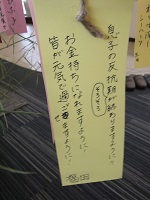 息子の反抗期が終わりますように!!
そろそろ
お金持ちになれますように
皆が元気で過ごせますように!